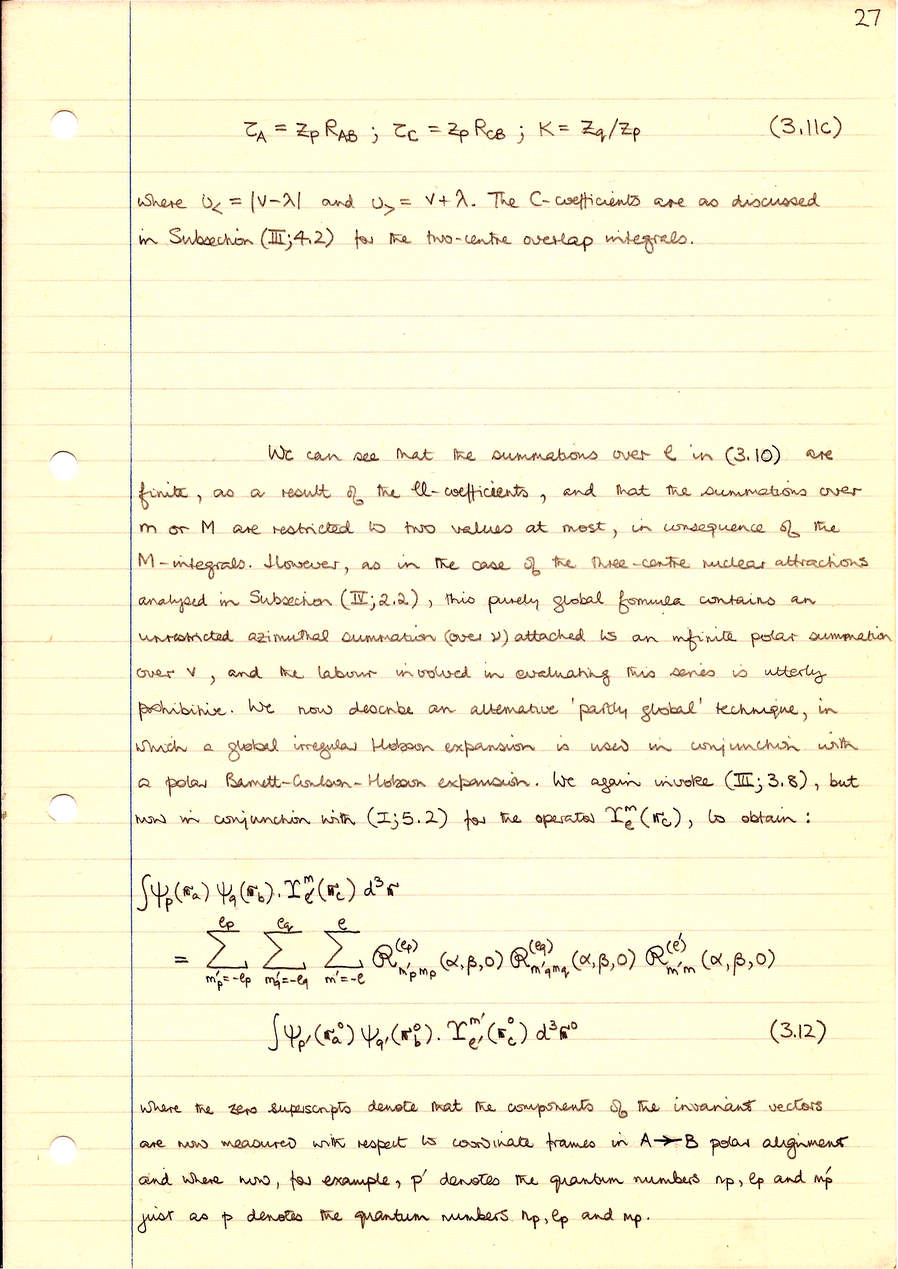 27
τ_A = z_p R_AB ; τ_C = z_p R_CB ; K = z_q/z_p (3.11c)
where υ_< = |v-λ| and υ_> = v+λ. The C-coefficients are as discussed
in Subsection (III;4.2) for the two-centre overlap integrals.
We can see that the summations over ℓ in (3.10) are
finite, as a result of the U-coefficients, and that the summations over
m or M are restricted to two values at most, in consequence of the
M-integrals. However, as in the case of the three-centre nuclear attractions
analysed in Subsection (IV;2.2), this purely global formula contains an
unrestricted azimuthal summation (over ν) attached to an infinite polar summation
over v, and the labour involved in evaluating this series is utterly
prohibitive. We now describe an alternative 'partly global' technique, in
which a global irregular Hobson expansion is used in conjunction with
a polar Barnett-Coulson-Hobson expansion. We again invoke (III;3.8), but
now in conjunction with (I;5.2) for the operator ϒ_ℓ^m(r_c), to obtain :
∫ψ_p(r_a) ψ_q(r_b). ϒ_ℓ'^m(r_c) d³r
= Σ_{m'_p=-ℓ_p}^{ℓ_p} Σ_{m'_q=-ℓ_q}^{ℓ_q} Σ_{m'=-ℓ}^{ℓ} R^{(ℓ_p)}_{m'_p m_p}(α,β,0) R^{(ℓ_q)}_{m'_q m_q}(α,β,0) R^{(ℓ')}_{m'm}(α,β,0)
∫ψ_p'(r_a^0) ψ_q'(r_b^0). ϒ_ℓ'^m'(r_c^0) d³r^0 (3.12)
where the zero superscripts denote that the components of the invariant vectors
are now measured with respect to coordinate frames in A→B polar alignment
and where now, for example, p' denotes the quantum numbers n_p, ℓ_p and m'_p
just as p denotes the quantum numbers n_p, ℓ_p and m_p.